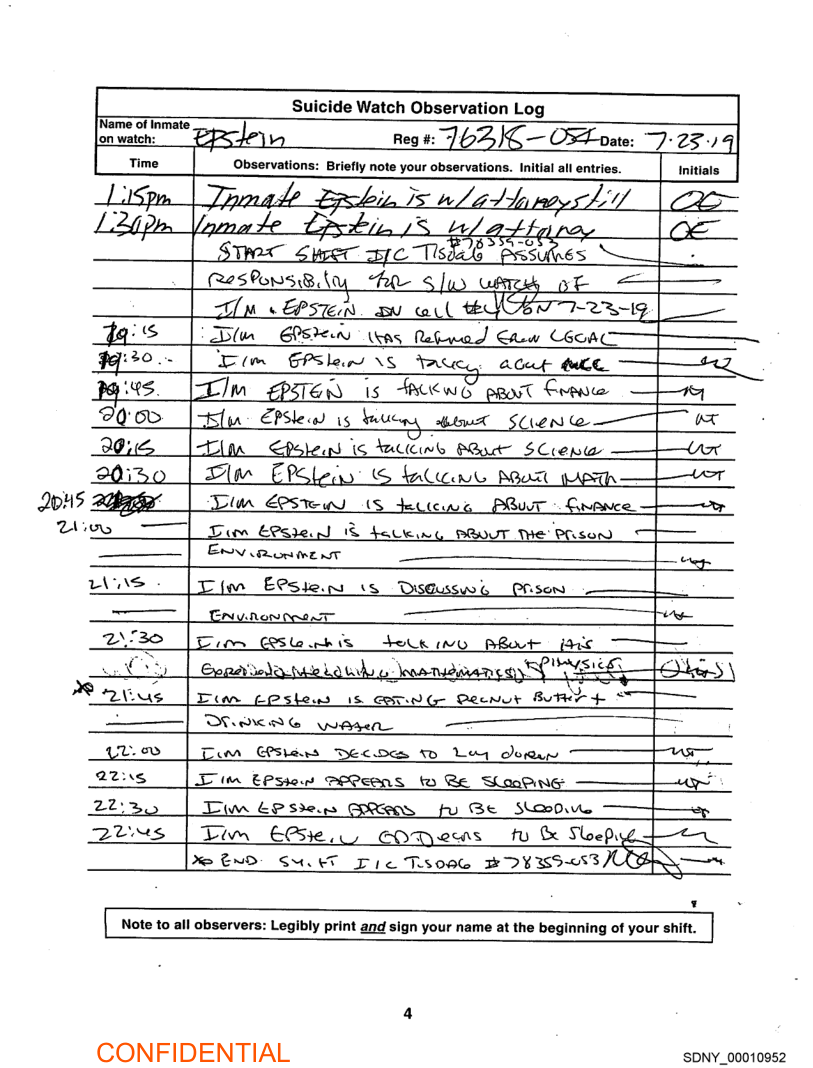 Suicide Watch Observation Log
Name of Inmate on watch: EPStein Reg #: 76318-054 Date: 7-23-19
Time Observations: Briefly note your observations. Initial all entries. Initials
1:15pm Inmate Epstein is w/ attorney still OE
1:30pm Inmate Epstein is w/ attorney OE
#78359-053
START SHIFT I/C TISDAG ASSUMES
RESPONSIBility for S/W WATCH OF
I/M EPSTEIN IN Cell ON 7-23-19
19:15 I/M EPSTEIN HAS Returned From LEGAL
19:30 I/M EPSteiN IS talking about
19:45 I/M EPSTEIN IS TALKING ABOUT FINANCE
20:00 I/M EPSteiN is talking about SCIENCE
20:15 I/M EPSteiN is talking ABout SCIENCE
20:30 I/M EPStein IS talking ABOUT MATH
20:45 I/M EPSTEIN IS talking ABOUT FINANCE
21:00 I/M EPSteiN IS talking ABOUT THE PRISON
ENVIRONMENT
21:15 I/M EPSteiN IS DISCUSSING PRISON
ENVIRONMENT
21:30 I/M EPSteiN is talking ABout His
MATHEMATICS PHYSICS
21:45 I/M EPSteiN IS EATING PEANUT Butter +
DRINKING WATER
22:00 I/M EPSteiN DECIDES to Lay down
22:15 I/M EPSteiN APPEARS to BE SLEEPING
22:30 I/M EPSteiN APPEARS to BE SLEEPING
22:45 I/M EPSteiN APPears to Be Sleeping
END SHIFT I/C TISDAG #78359-053
Note to all observers: Legibly print and sign your name at the beginning of your shift.
4
CONFIDENTIAL
SDNY_00010952